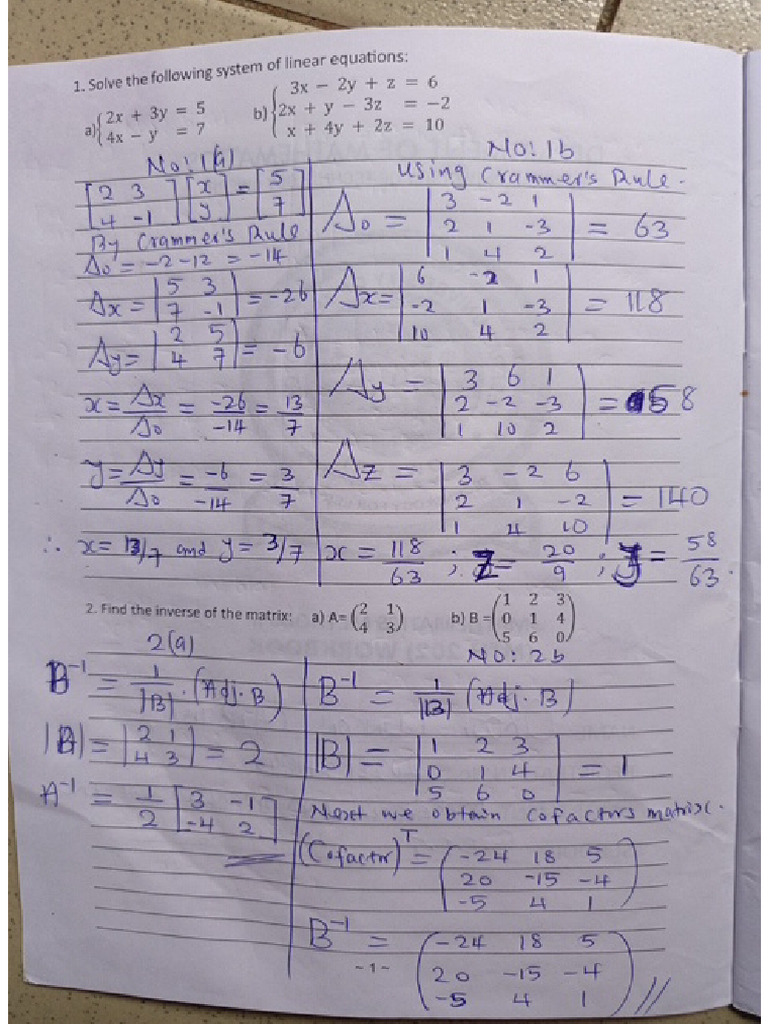 1. Solve the following system of linear equations:
a){2x + 3y = 5
4x − y = 7
b){3x − 2y + z = 6
2x + y − 3z = −2
x + 4y + 2z = 10
No: 1(a)
[2 3
4 -1] [x
y] = [5
7]
By Crammer's Rule
Δo = -2 -12 = -14
Δx = |5 3
7 -1| = -26
Δy = |2 5
4 7| = -6
x = Δx/Δo = -26/-14 = 13/7
y = Δy/Δo = -6/-14 = 3/7
∴ x = 13/7 and y = 3/7
No: 1b
using Crammer's Rule.
Δo = |3 -2 1
2 1 -3
1 4 2| = 63
Δx = |6 -2 1
-2 1 -3
10 4 2| = 118
Δy = |3 6 1
2 -2 -3
1 10 2| = 58
Δz = |3 -2 6
2 1 -2
1 4 10| = 140
x = 118/63 ; z = 20/9 ; y = 58/63.
2. Find the inverse of the matrix: a) A= (2 1
4 3) b) B = (1 2 3
0 1 4
5 6 0)
2(a)
B⁻¹ = 1/|B| . (Adj. B)
|A| = |2 1
4 3| = 2
A⁻¹ = 1/2 [3 -1
-4 2]
NO: 2b
B⁻¹ = 1/|B| (Adj. B)
|B| = |1 2 3
0 1 4
5 6 0| = 1
Next we obtain cofactors matrix.
(Cofactor)ᵀ = (-24 18 5
20 -15 -4
-5 4 1)
B⁻¹ = (-24 18 5
20 -15 -4
-5 4 1)//
- 1 -